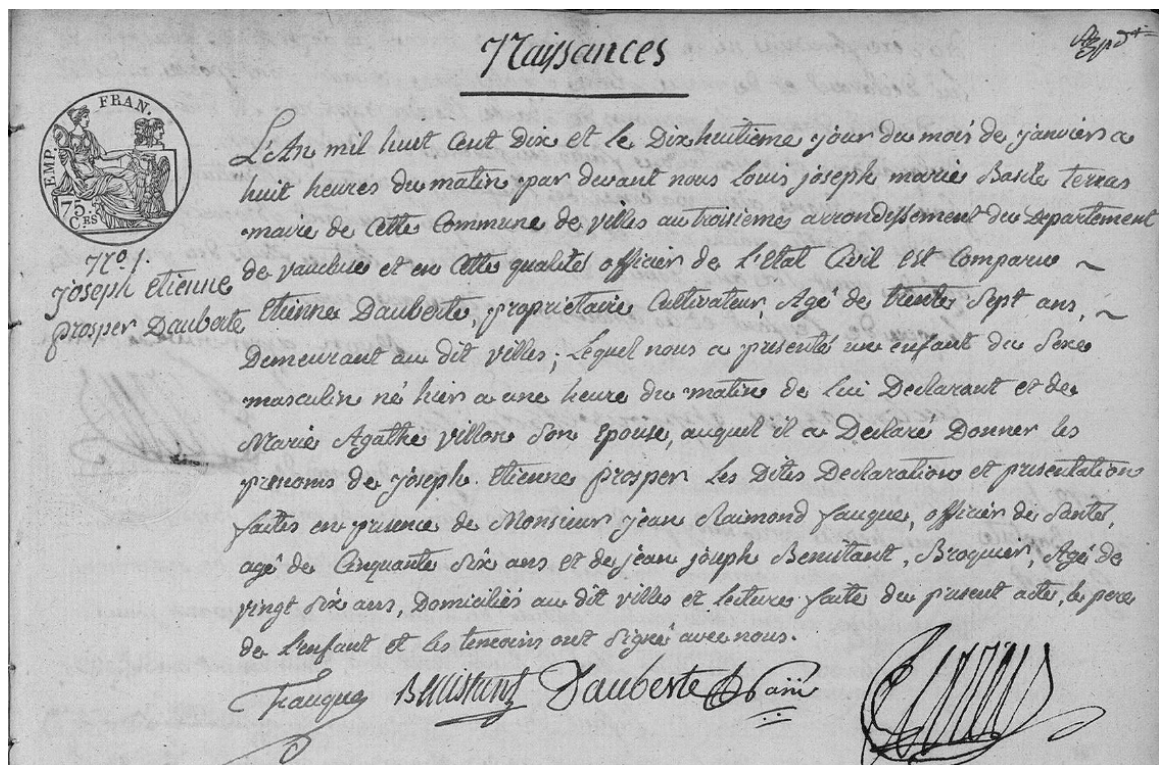 Naissances
EMP. FRAN.
75
C.ES
L'An mil huit Cent Dix et le Dix huitieme jour du mois de janviers a
huit heures du matin par devant nous Louis joseph marie Basile terras
maire de Cette Commune de villes au troisieme arrondissement du Departement
de vaucluse et en Cette qualités officier de L'Etat Civil est Comparu ~
Etienne Dauberte, proprietaire Cultivateur, Agé de trente Sept ans, ~
Demeurant au dit villes; Lequel nous a presenté un enfant du Sexe
masculin né hier a une heure du matin de Lui Declarant et de
Marie Agathe villon Son Epouse, auquel il a Declaré Donner les
prenoms de joseph. Etienne prosper Les Dites Declaration et presentation
faites en presence de Monsieur jean Raimond fauque, officier de Santé,
agé de Cinquante Six ans et de jean joseph Benistant, Broquier, Agé de
vingt Six ans, Domiciliés au dit villes et Lecture faite du present acte, le pere
de L'enfant et les temoins ont Signé avec nous.
No. 1.
joseph etienne
prosper Dauberte
fauque Benistant Dauberte
Terras